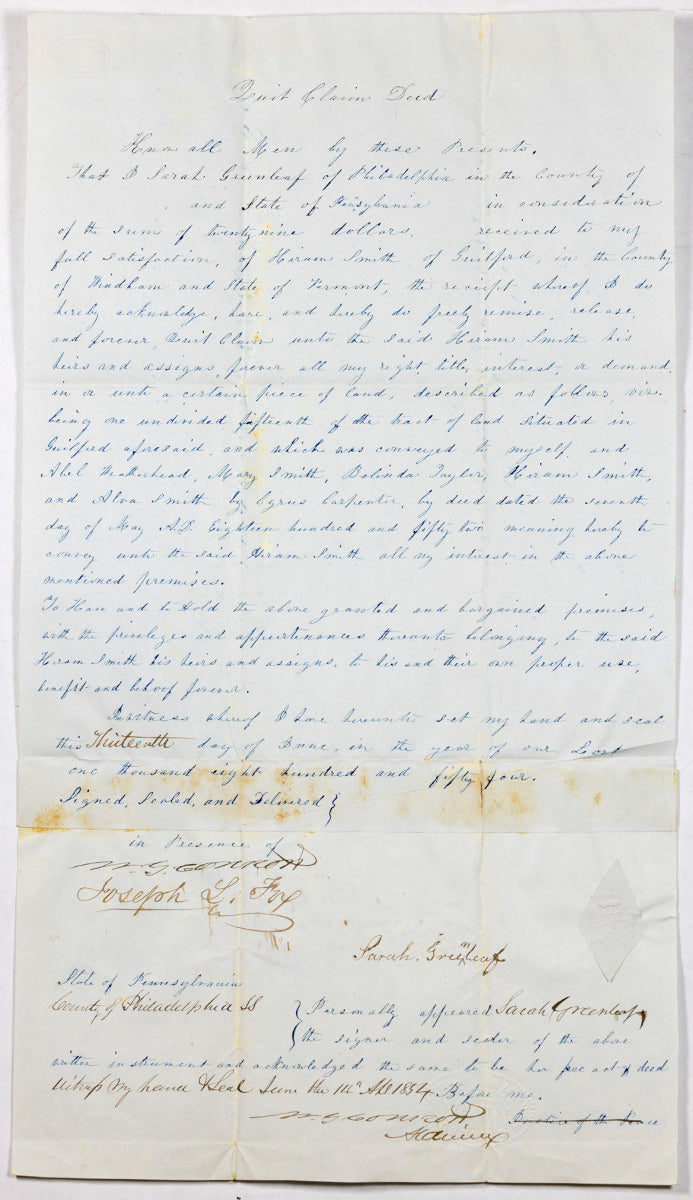 Quit Claim Deed
Know all Men by these Presents.
That I Sarah Greenleaf of Philadelphia in the County of
and State of Pensylvania in consideration
of the sum of twenty nine dollars, received to my
full satisfaction, of Hiram Smith of Guilford, in the County
of Windham and State of Vermont, the receipt whereof I do
hereby acknowledge, have, and hereby do freely remise, release,
and forever Quit Claim unto the said Hiram Smith his
heirs and assigns, forever all my right, title, interest, or demand,
in or unto a certain piece of land, described as follows, viz.
being one undivided fifteenth of the tract of land situated in
Guilford aforesaid, and which was conveyed to myself, and
Abel Weatherhead, Mary Smith, Belinda Taylor, Hiram Smith,
and Alva Smith by Cyrus Carpenter, by deed dated the seventh
day of May A.D. Eighteen hundred and fifty two meaning hereby to
convey unto the said Hiram Smith all my interest in the above
mentioned premises.
To Have and to Hold the above granted and bargained premises,
with the privileges and appurtenances thereunto belonging, to the said
Hiram Smith his heirs and assigns, to his and their own proper use,
benefit and behoof forever.
In witness whereof I have hereunto set my hand and seal
this Thirteenth day of June, in the year of our Lord
one thousand eight hundred and fifty four.
Signed, Sealed, and Delivered }
in Presence of
Joseph L. Fox
Sarah. Greenleaf
State of Pennsylvania
County of Philadelphia SS { Personally appeared Sarah Greenleaf
the signer and sealer of the above
written instrument and acknowledged the same to be her free act & deed
my hand & Seal June the 14th 1854 Before me.
Justice of the Peace